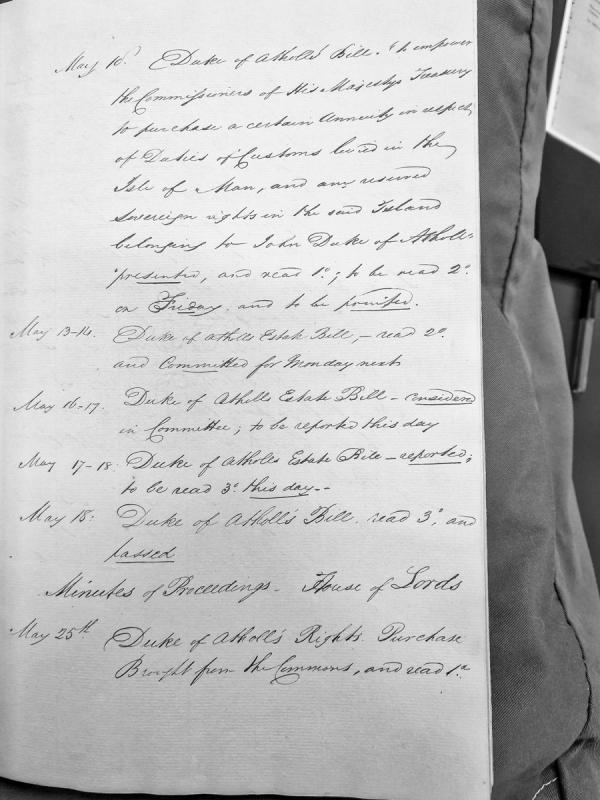 May 10.° Duke of Atholls Bill. "To empower
the Commissioners of His Majestys Treasury
to purchase a certain Annuity in respect
of Duties of Customs levied in the
Isle of Man, and any reserved
Sovereign rights in the said Island
belonging to John Duke of Atholl"
presented, and read 1°; to be read 2°
on Friday and to be printed.
May 13-14. Duke of Atholls Estate Bill, - read 2°
and Committed for Monday next
May 16-17. Duke of Atholls Estate Bill - considered
in Committee; to be reported this day
May 17-18. Duke of Atholls Estate Bill - reported;
to be read 3° this day--
May 18: Duke of Atholl's Bill. read 3°, and
passed
Minutes of Proceedings - House of Lords
May 25th Duke of Atholl's Rights Purchase
Brought from the Commons, and read 1a